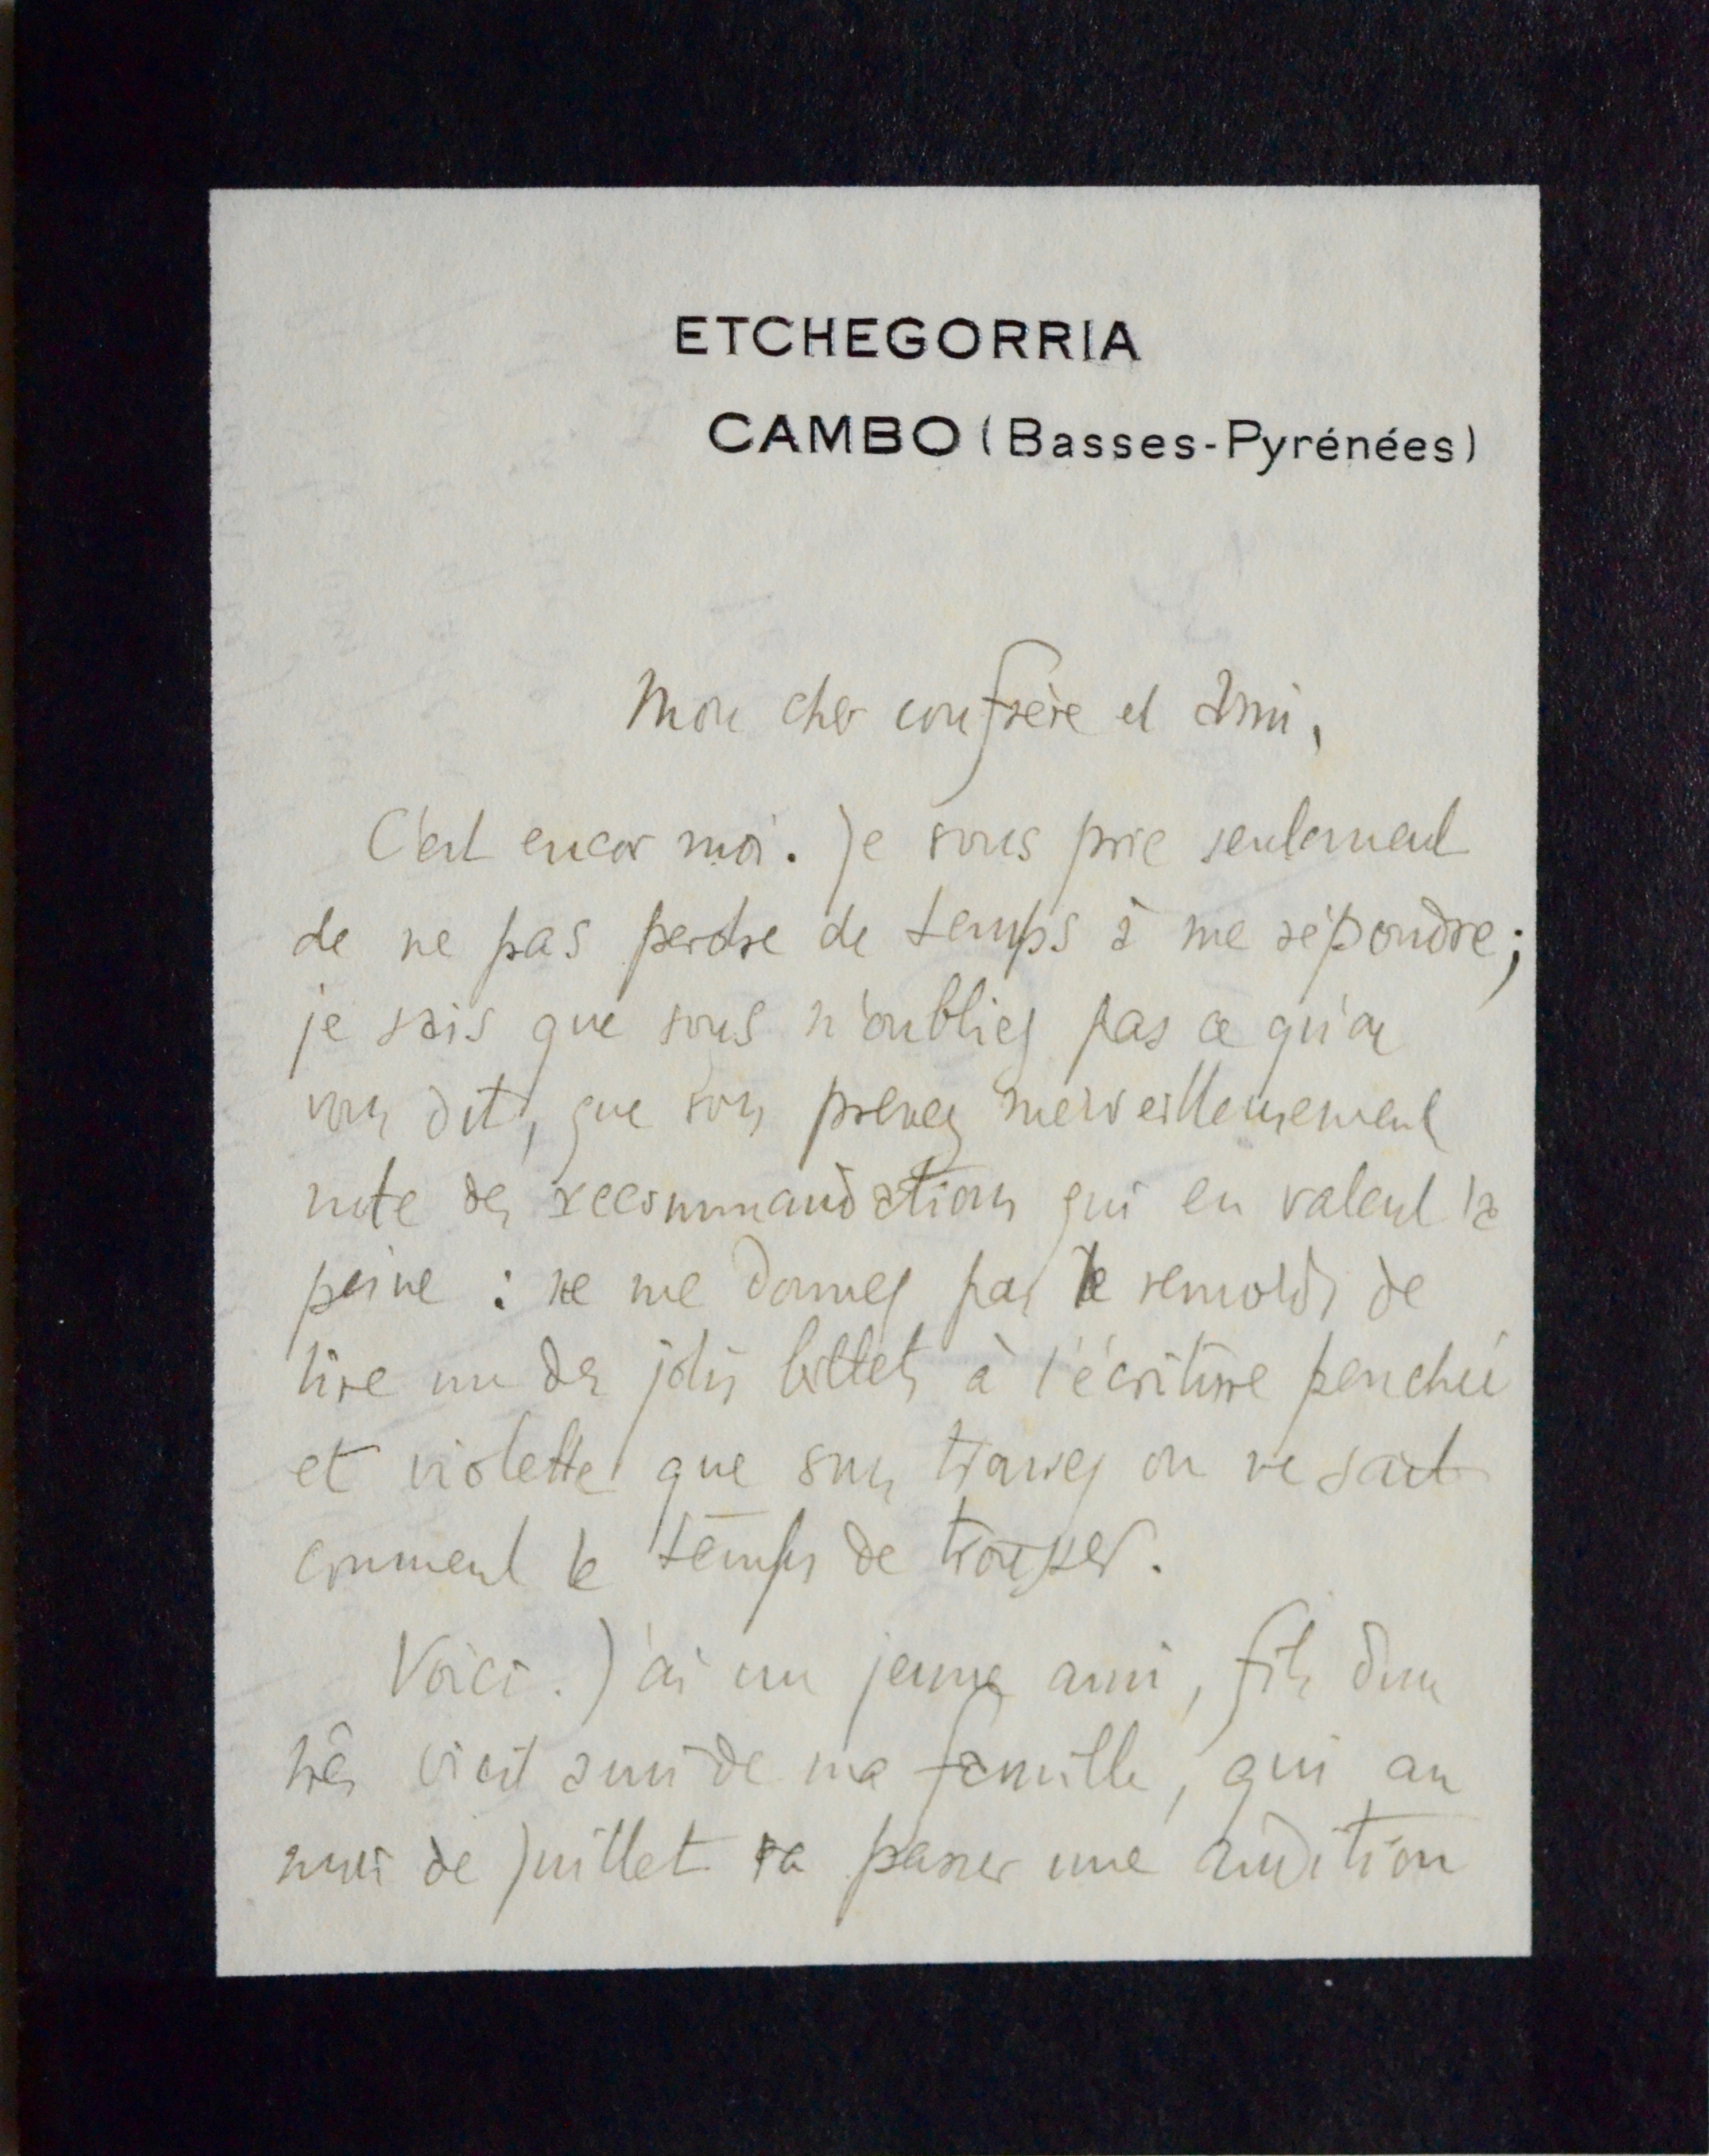 ETCHEGORRIA
CAMBO (Basses-Pyrénées)
Mon cher confrère et ami,
C'est encor moi. Je vous prie seulement
de ne pas perdre de temps à me répondre;
je sais que vous n'oubliez pas ce qu'on
vous dit, que vous prenez merveilleusement
note des recommandations qui en valent la
peine : ne me donnez pas le remords de
lire un des jolis billets à l'écriture penchée
et violette que vous trouvez on ne sait
comment le temps de trouver.
Voici. J'ai un jeune ami, fils d'un
très vieil ami de ma famille, qui au
mois de Juillet va passer une audition